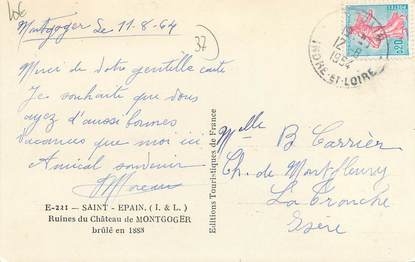 10€
Montgoger Le 11-8-64
37
Merci de votre gentille carte
Je souhaite que vous
ayez d'aussi bonnes
vacances que moi ici
Amical souvenir
Moreau
E-221 - SAINT - EPAIN. (I. & L.)
Ruines du Château de MONTGOGER
brûlé en 1888
Editions Touristiques de France
12-8
1964
INDRE-ET-LOIRE
0,20
Melle B Carrier
Ch. de Montfleury
La Tronche
Isère